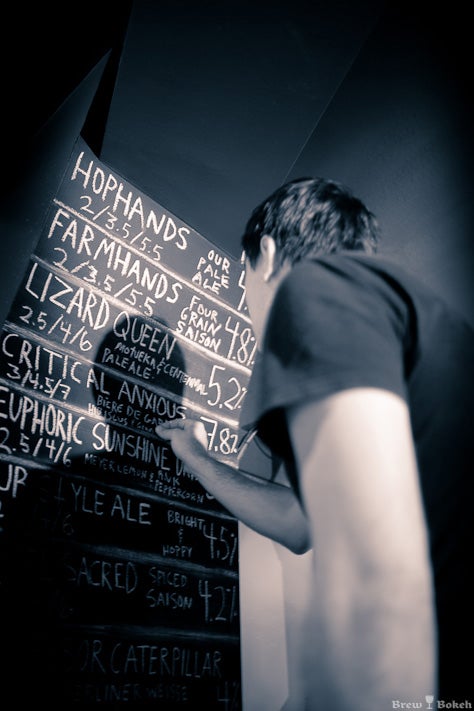 HOPHANDS OUR PALE ALE 4
2/3.5/5.5
FARMHANDS FOUR GRAIN SAISON 4.8%
2/3.5/5.5
LIZARD QUEEN MOTUEKA & CENTENNIAL PALE ALE 5.2
2.5/4/6
CRITICAL ANXIOUS BIÈRE DE GAR 7.8%
3/4.5/7 HIBISCUS
EUPHORIC SUNSHINE
2.5/4/6 MEYER LEMON & PINK PEPPERCORN
UP
YLE ALE BRIGHT & HOPPY 4.5%
/6
SACRED SPICED SAISON 4.2%
OR CATERPILLAR
BERLINER WEISSE 4
Brew Bokeh